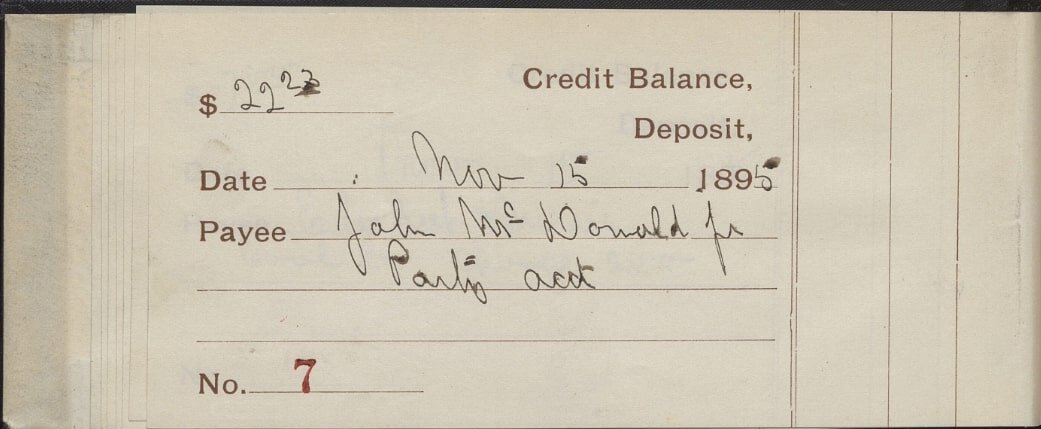 Credit Balance,
$ 22 23
Deposit,
Date Nov 15 1895
Payee John Mc Donald Jr
acct
No. 7